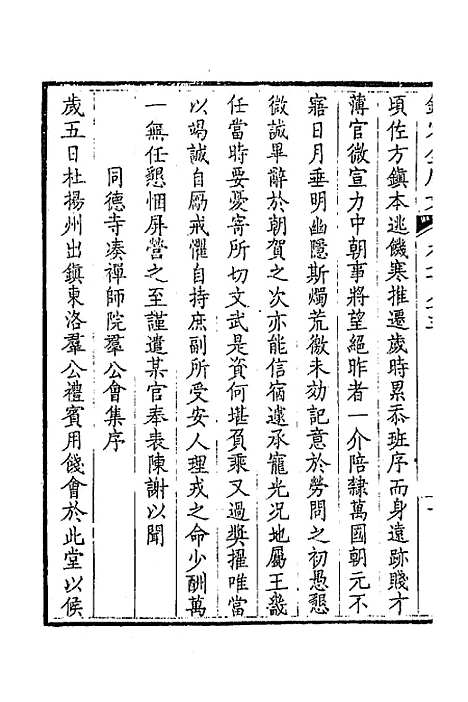 頃佐方鎮本逃饑寒推遷歲時累忝班序而身遠跡賤才
薄官微宣力中朝事將望絕昨者一介陪隸萬國朝元不
寤日月垂明幽隱斯燭荒徼未効記意於勞問之初愚懇
微誠畢辭於朝賀之次亦能信宿遽承寵光況地屬王畿
任當時要憂寄所切文武是資何堪負乘又過奬擢唯當
以竭誠自勵戒懼自持庶副所受安人理戎之命少酬萬
一無任懇悃屏營之至謹遣某官奉表陳謝以聞
同德寺湊禪師院羣公會集序
歲五日杜揚州出鎮東洛羣公禮賓用餞會於此堂以侯